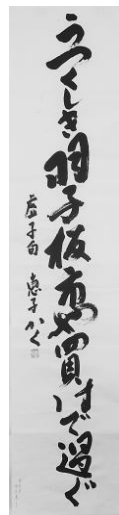 うつくしき羽子板市や買はで過ぐ
虚子句 恵子かく